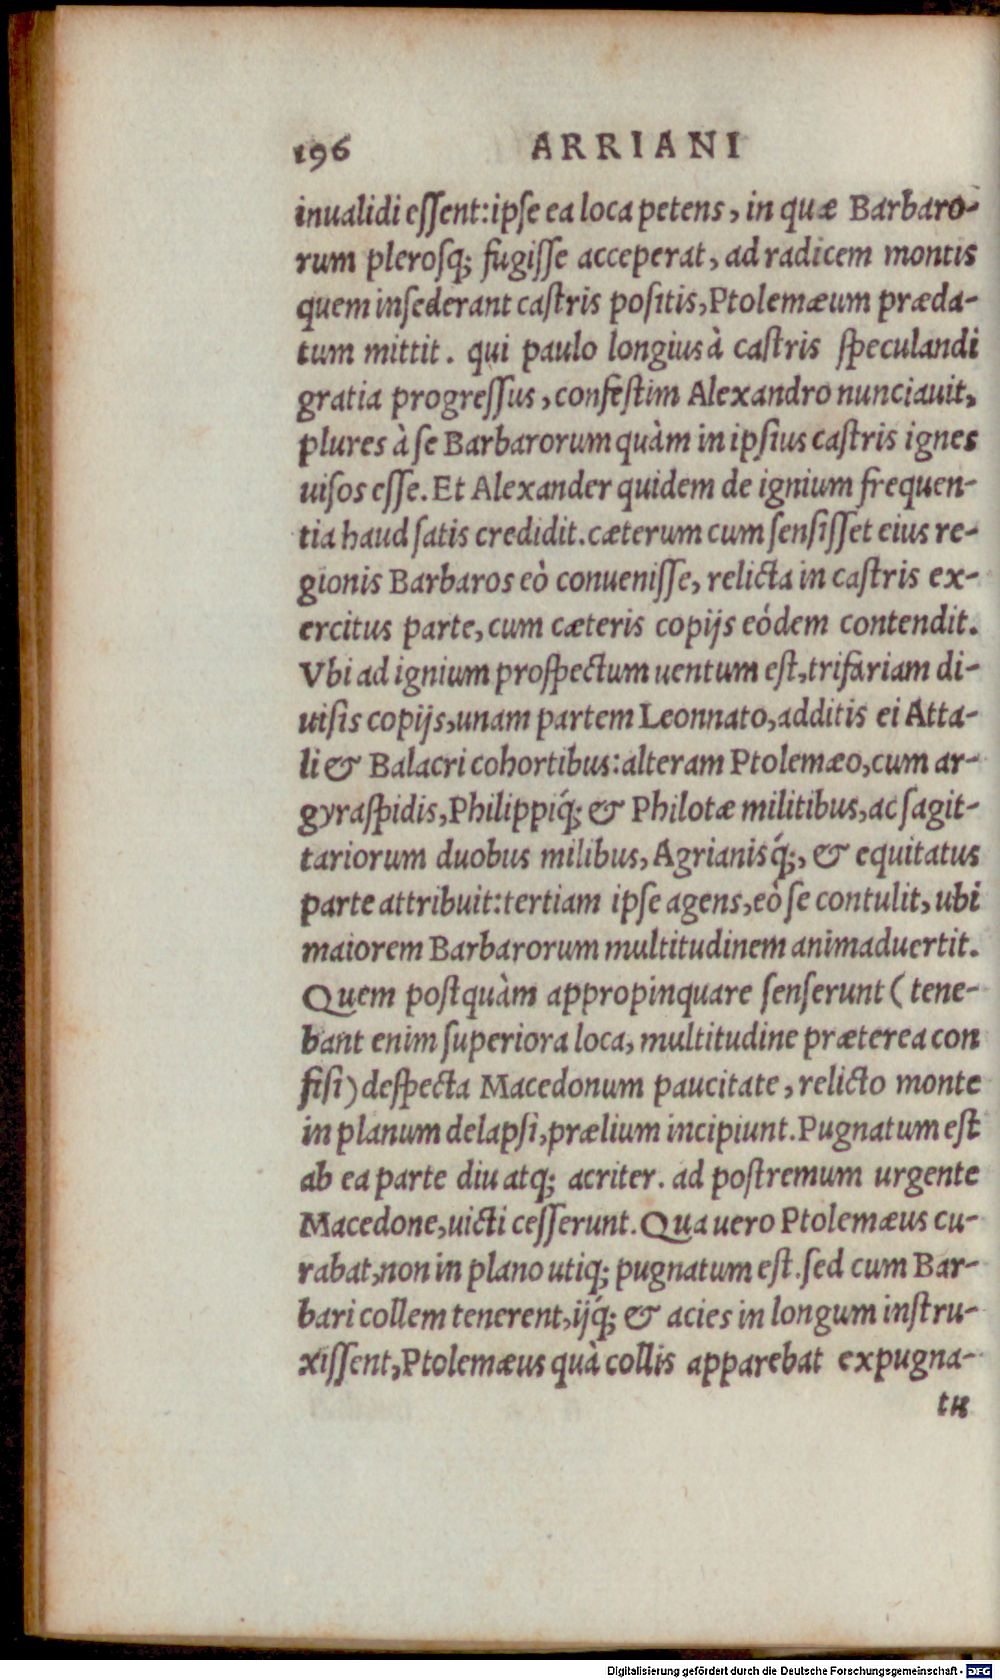 196 ARRIANI
inualidi eſſent: ipſe ea loca petens, in quæ Barbaro-
rum pleroſq; fugiſſe acceperat, ad radicem montis
quem inſederant caſtris poſitis, Ptolemæum præda-
tum mittit. qui paulo longius à caſtris ſpeculandi
gratia progreſſus, confeſtim Alexandro nunciauit,
plures à ſe Barbarorum quàm in ipſius caſtris ignes
uiſos eſſe. Et Alexander quidem de ignium frequen-
tia haud ſatis credidit. cæterum cum ſenſiſſet eius re-
gionis Barbaros eò conueniſſe, relicta in caſtris ex-
ercitus parte, cum cæteris copijs eódem contendit.
Vbi ad ignium proſpectum uentum eſt, trifariam di-
uiſis copijs, unam partem Leonnato, additis ei Atta-
li & Balacri cohortibus: alteram Ptolemæo, cum ar-
gyraſpidis, Philippiq́; & Philotæ militibus, ac ſagit-
tariorum duobus milibus, Agrianisq́;, & equitatus
parte attribuit: tertiam ipſe agens, eò ſe contulit, ubi
maiorem Barbarorum multitudinem animaduertit.
Quem poſtquàm appropinquare ſenſerunt (tene-
bant enim ſuperiora loca, multitudine præterea con
fiſi) deſpecta Macedonum paucitate, relicto monte
in planum delapſi, prælium incipiunt. Pugnatum eſt
ab ea parte diu atq; acriter. ad poſtremum urgente
Macedone, uicti ceſſerunt. Qua uero Ptolemæus cu-
rabat, non in plano utiq; pugnatum eſt. ſed cum Bar-
bari collem tenerent, ijq́; & acies in longum inſtru-
xiſſent, Ptolemæus quà collis apparebat expugna-
tu
Digitalisierung gefördert durch die Deutsche Forschungsgemeinschaft - DFG